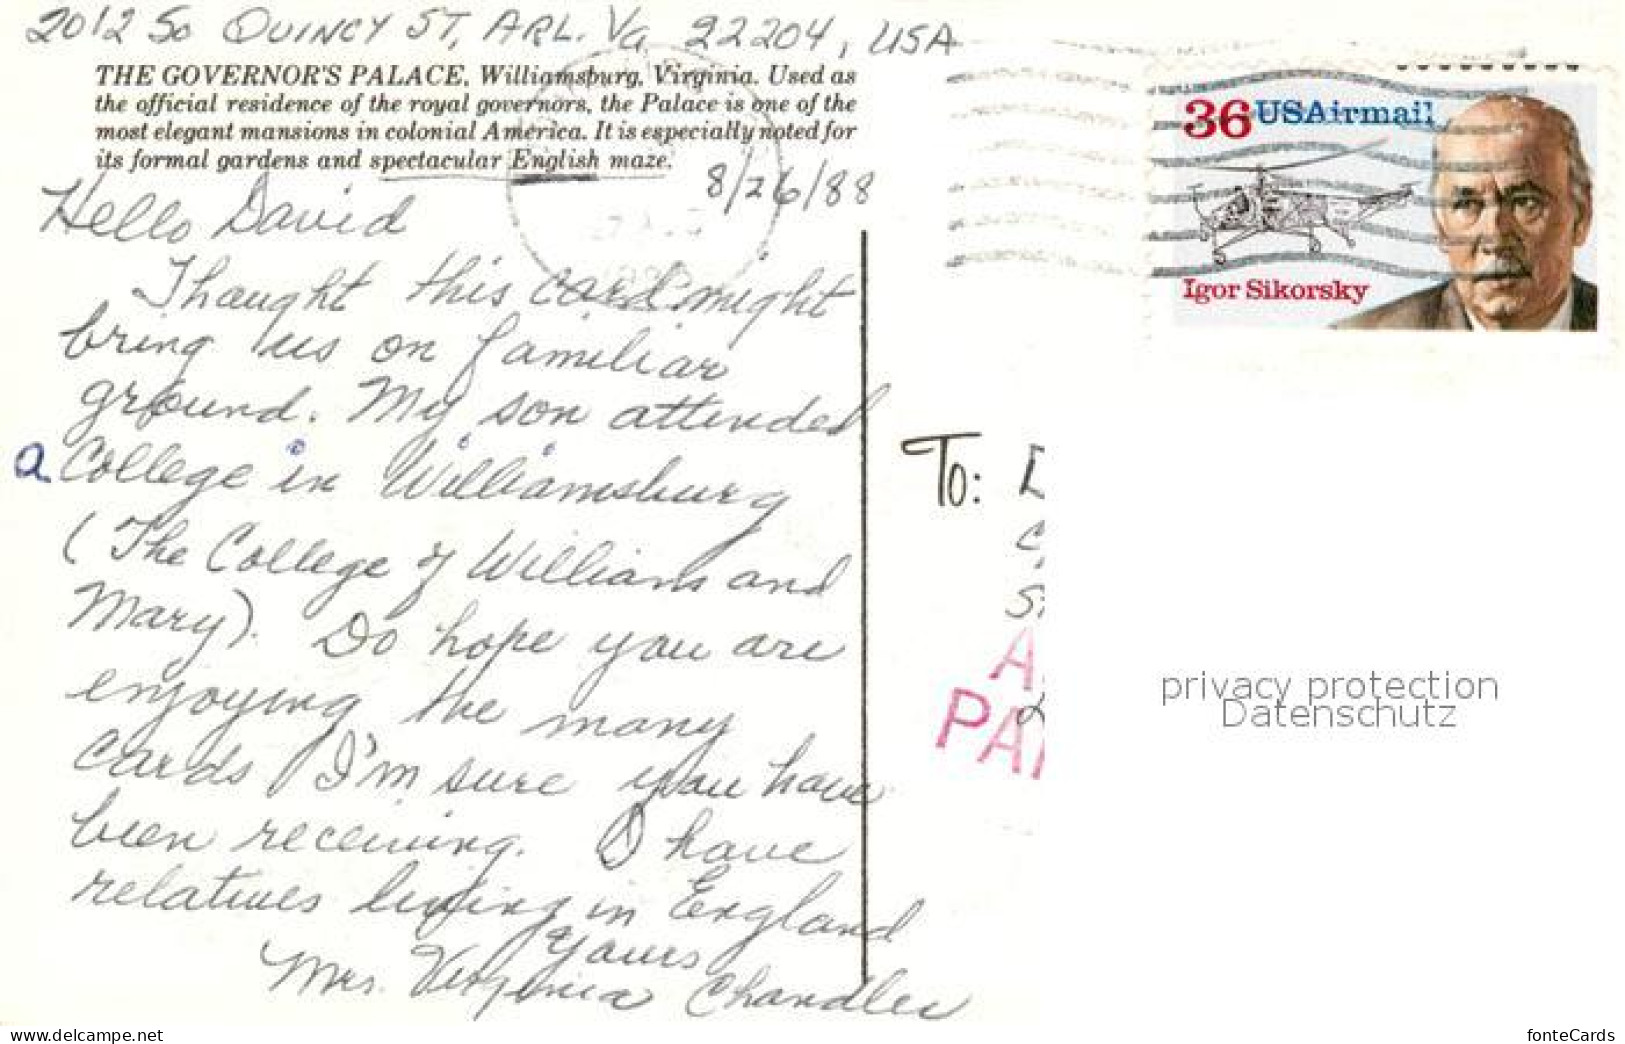 2012 So QUINCY ST, ARL. Va 22204, USA
THE GOVERNOR'S PALACE, Williamsburg, Virginia. Used as
the official residence of the royal governors, the Palace is one of the
most elegant mansions in colonial America. It is especially noted for
its formal gardens and spectacular English maze.
8/26/88
Hello David
Thought this card might
bring us on familiar
ground. My son attended
a College in Williamsburg
(The College of William and
Mary). Do hope you are
enjoying the many
cards I'm sure you have
been receiving. I have
relatives living in England
Yours
Mrs. Virginia Chandler
36 USAirmail
Igor Sikorsky
To:
PA
privacy protection
Datenschutz
www.delcampe.net
fonteCards